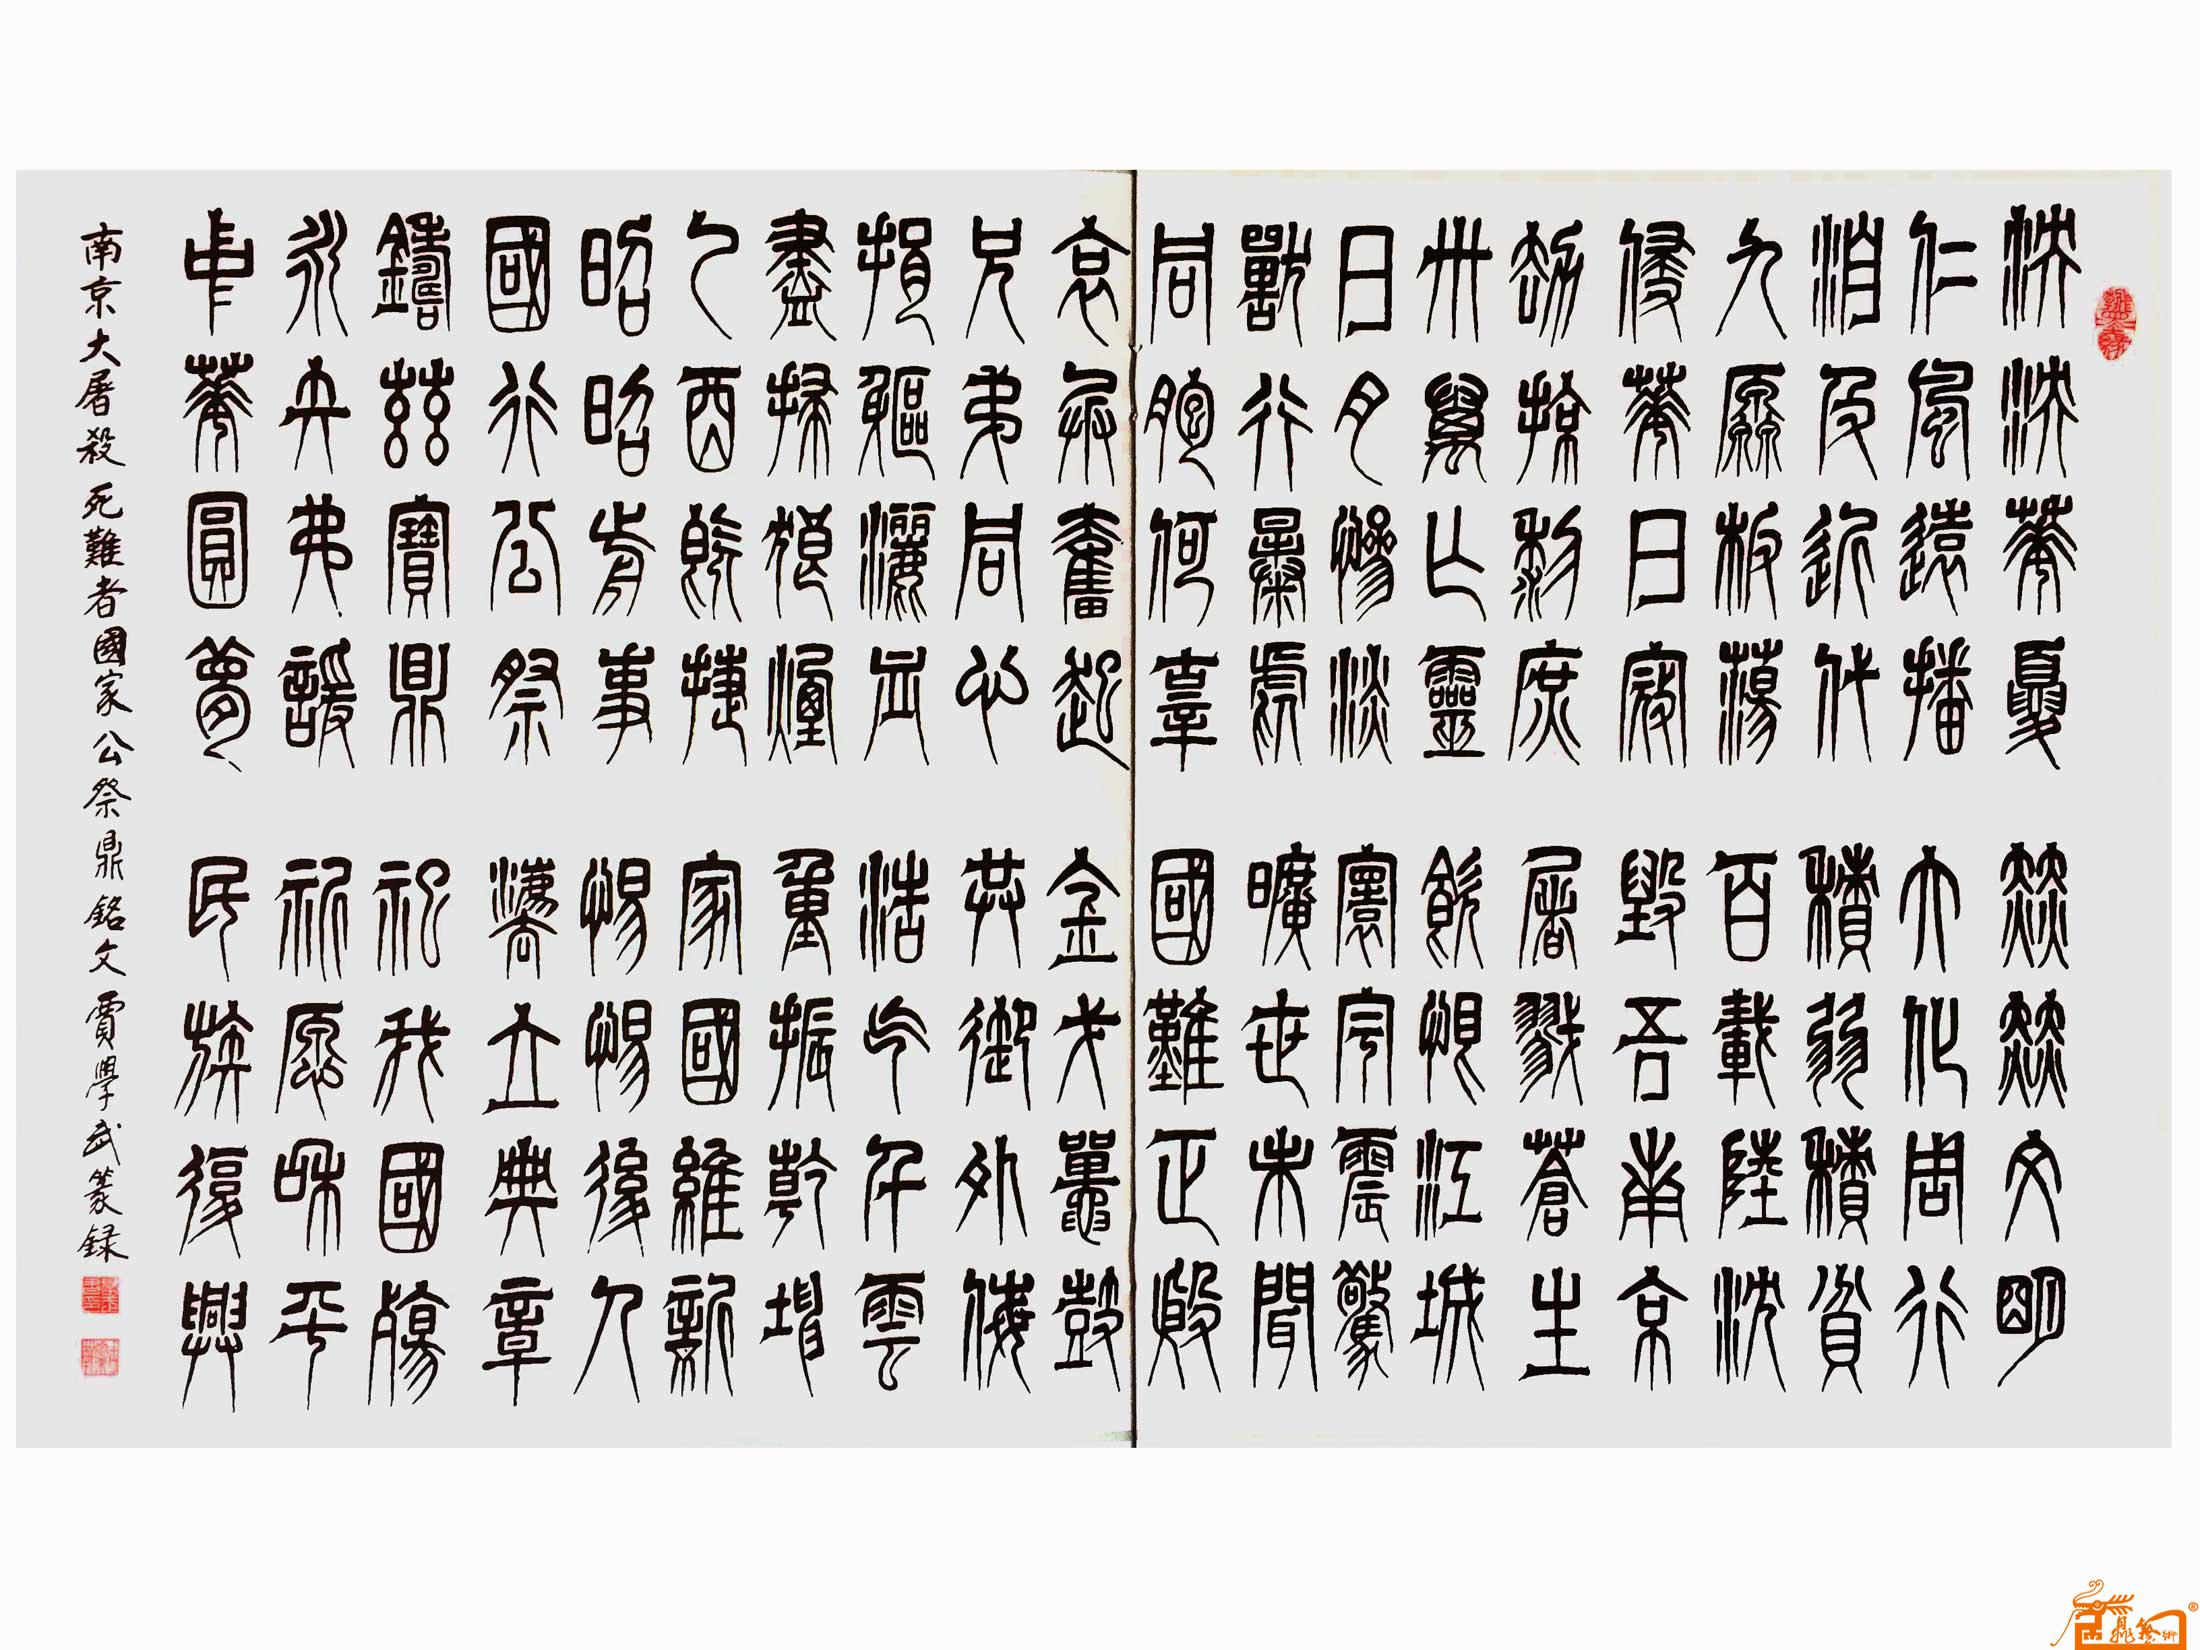 泱泱華夏赫赫文明
仁風遠播大化周行
洎及近代積弱積貧
九原板蕩百載陸沈
侵華日寇毀吾南京
劫掠黎庶屠戮蒼生
卅萬亡靈飲恨江城
日月慘淡寰宇震驚
獸行暴虐曠世未聞
同胞何辜國難正殷
哀兵奮起金戈鼉鼓
兄弟同心共禦外侮
捐軀灑血浩氣干雲
盡掃狼煙重振乾坤
乙酉既捷家國維新
昭昭前事惕惕後人
國行公祭灋立典章
鑄茲寶鼎祀我國殤
永矢弗諼祈愿和平
中華圓夢民族復興
南京大屠殺死難者國家公祭鼎銘文賈學武篆録